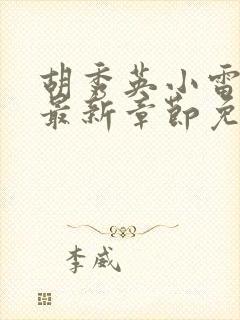 胡秀英小雷
最新章节免
李威